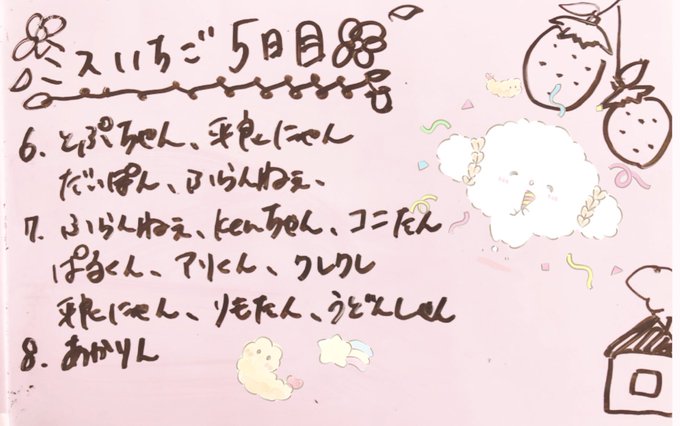 スいちご5日目
6. とぷちゃん、平良にゃん
だいぽん、ふらんねぇ、
7. ふらんねぇ、Kenちゃん、コニたん
ぱるくん、アリくん、クレクレ
平良にゃん、りもたん、うどんしゃん
8. あかりん